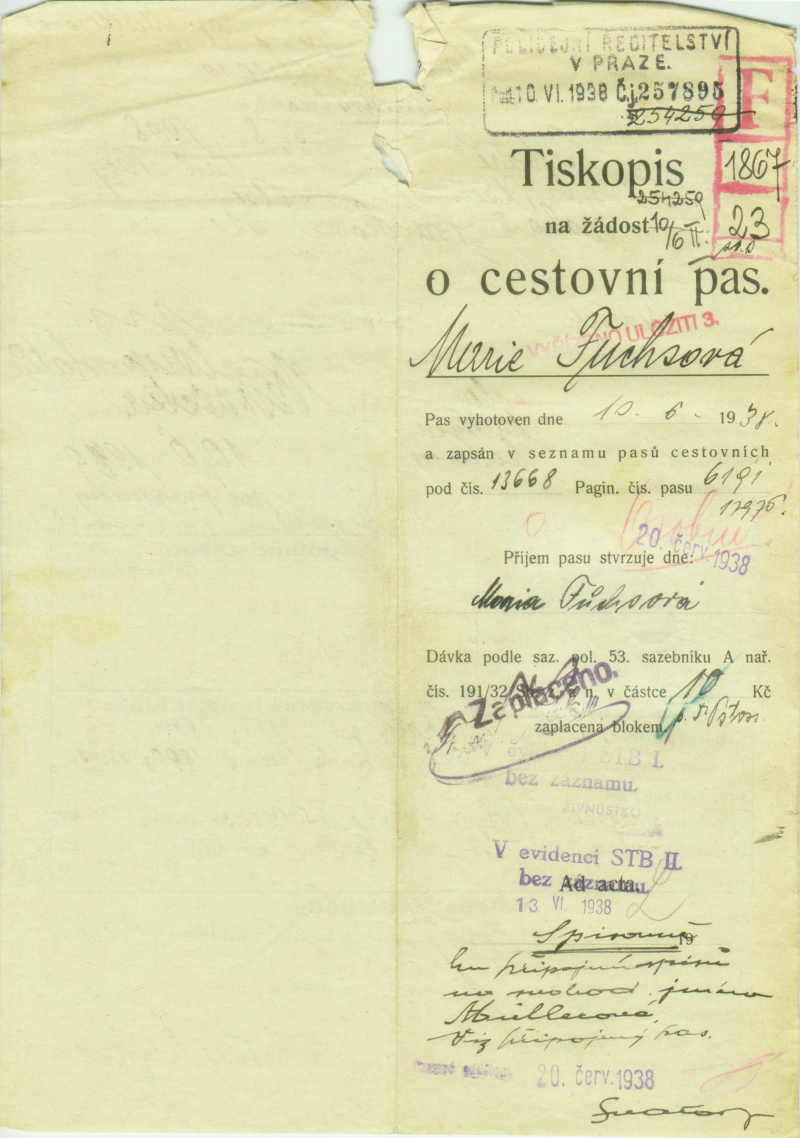 POLICEJNÍ ŘEDITELSTVÍ
V PRAZE.
10. VI. 1938 Č.j. 257895
254259
F
1867
23
Tiskopis
254259
na žádost 10/6 II.
o cestovní pas.
ULOŽITI 3.
Marie Fuchsová
Pas vyhotoven dne 10. 6. 1938.
a zapsán v seznamu pasů cestovních
pod čís. 13668 Pagin. čís. pasu 6191
17975.
20. červ. 1938
Příjem pasu stvrzuje dne:
Maria Fůchsová
Dávka podle saz. pol. 53. sazebníku A nař.
čís. 191/32 n. v částce 10 Kč
Zaplaceno.
zaplacena blokem
V evidenci STB I.
bez záznamu.
V evidenci STB II.
bez záznamu.
Ad acta.
13 VI. 1938
19
připojený
jméno
Müllerová,
Viz připojený pas.
20. červ. 1938